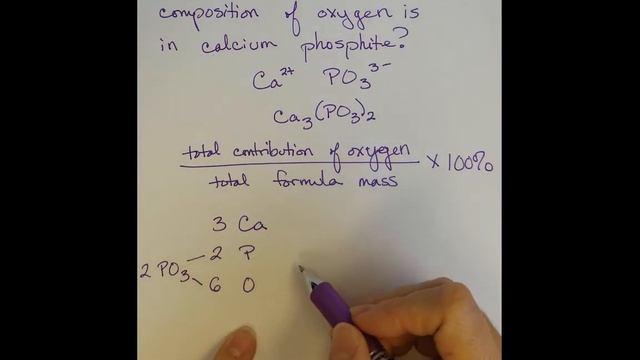 composition of oxygen is
in calcium phosphite?
Ca²⁺ PO₃³⁻
Ca₃(PO₃)₂
total contribution of oxygen
total formula mass
× 100%
3 Ca
2 P
2 PO₃
6 O